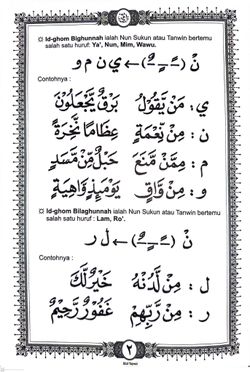 Id-ghom Bighunnah ialah Nun Sukun atau Tanwin bertemu
salah satu huruf: Ya', Nun, Mim, Wawu.
نْ (ـًـ ـٍـ ـٌـ) ← ي ن م و
Contohnya :
ي : مَنْ يَقُوْلُ بَرْقٌ يَّجْعَلُوْنَ
ن : مِنْ نِعْمَةٍ عِظَامًا نَّخِرَةً
م : مِمَّنْ مَّنَعَ حَبْلٌ مِّنْ مَّسَدٍ
و : مِنْ وَّاقٍ يَوْمَئِذٍ وَّاهِيَةٌ
Id-ghom Bilaghunnah ialah Nun Sukun atau Tanwin bertemu
salah satu huruf : Lam, Ro'.
نْ (ـًـ ـٍـ ـٌـ) ← ل ر
Contohnya :
ل : مِنْ لَّدُنْهُ خَيْرٌ لَّكَ
ر : مِنْ رَّبِّهِمْ غَفُوْرٌ رَّحِيْمٌ
٢